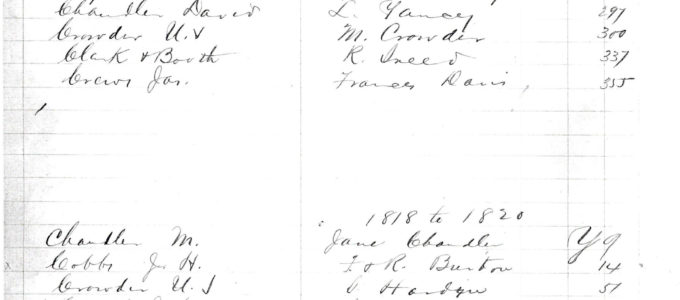 Chandler David L. Yancey 297
Crowder U. M. Crowder 300
Clark & Booth R. Sneed 337
Crews Jas. Frances Davis 355
1818 to 1820
Chandler M. Jane Chandler Y 9
Cobbs J. H. F & R. Burton 14
Crowder U. J Hardyn 51